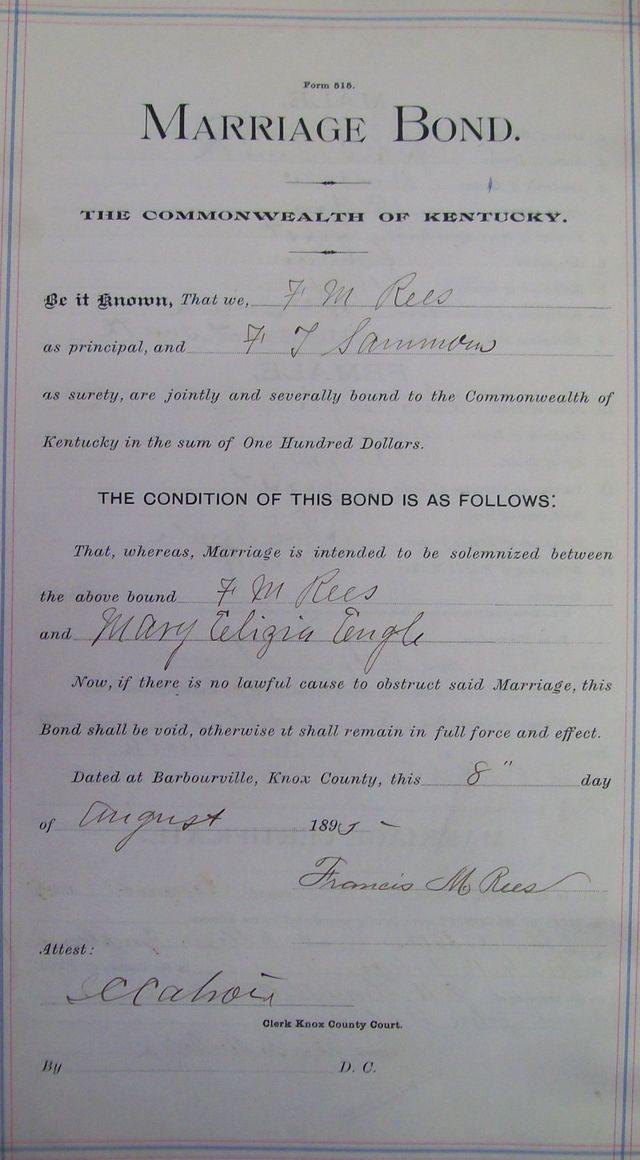 Form 515.
MARRIAGE BOND.
THE COMMONWEALTH OF KENTUCKY.
Be it Known, That we, F M Rees
as principal, and F T Sammons
as surety, are jointly and severally bound to the Commonwealth of
Kentucky in the sum of One Hundred Dollars.
THE CONDITION OF THIS BOND IS AS FOLLOWS:
That, whereas, Marriage is intended to be solemnized between
the above bound F M Rees
and Mary Elizia Engle
Now, if there is no lawful cause to obstruct said Marriage, this
Bond shall be void, otherwise it shall remain in full force and effect.
Dated at Barbourville, Knox County, this 8" day
of August 1895
Francis M Rees
Attest:
Clerk Knox County Court.
By D. C.